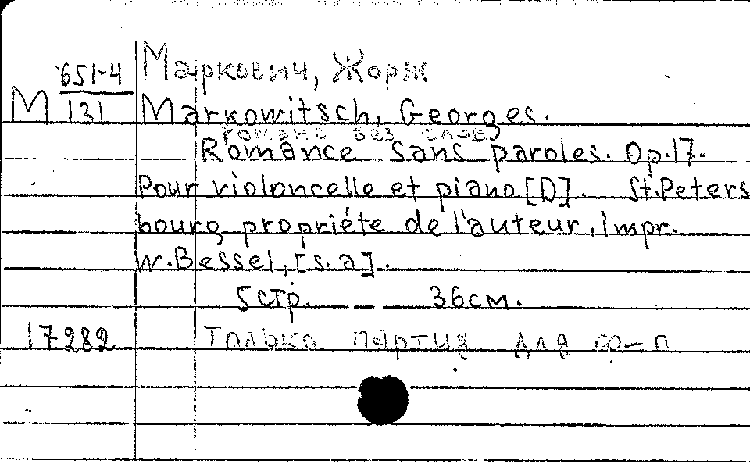 651-4 Маркович, Жорж
М 131 Markowitsch, Georges.
романс без слов
Romance sans paroles. Op.17.
Pour violoncelle et piano [D]. St. Peters
bourg propriéte de l'auteur, Impr.
W. Bessel, [s.a].
5 стр. — 36 см.
17282 Только партия для ф-п